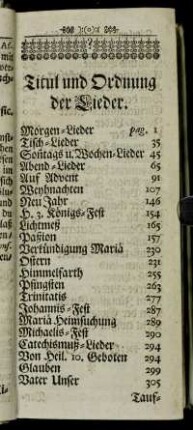 Titul und Ordnung
der Lieder.
Morgen-Lieder pag. 1
Tisch-Lieder 35
Soñtags u. Wochen-Lieder 45
Abend-Lieder 65
Auf Advent 91
Weyhnachten 107
Neu Jahr 146
H. 3. Königs-Fest 154
Lichtmeß 165
Paßion 157
Verkündigung Mariä 230
Ostern 231
Himmelfarth 255
Pfingsten 263
Trinitatis 277
Johannis-Fest 287
Mariä Heimsuchung 289
Michaelis-Fest 290
Catechismuß-Lieder 294
Von Heil. 10. Geboten 294
Glauben 299
Vater Unser 305
Tauf-